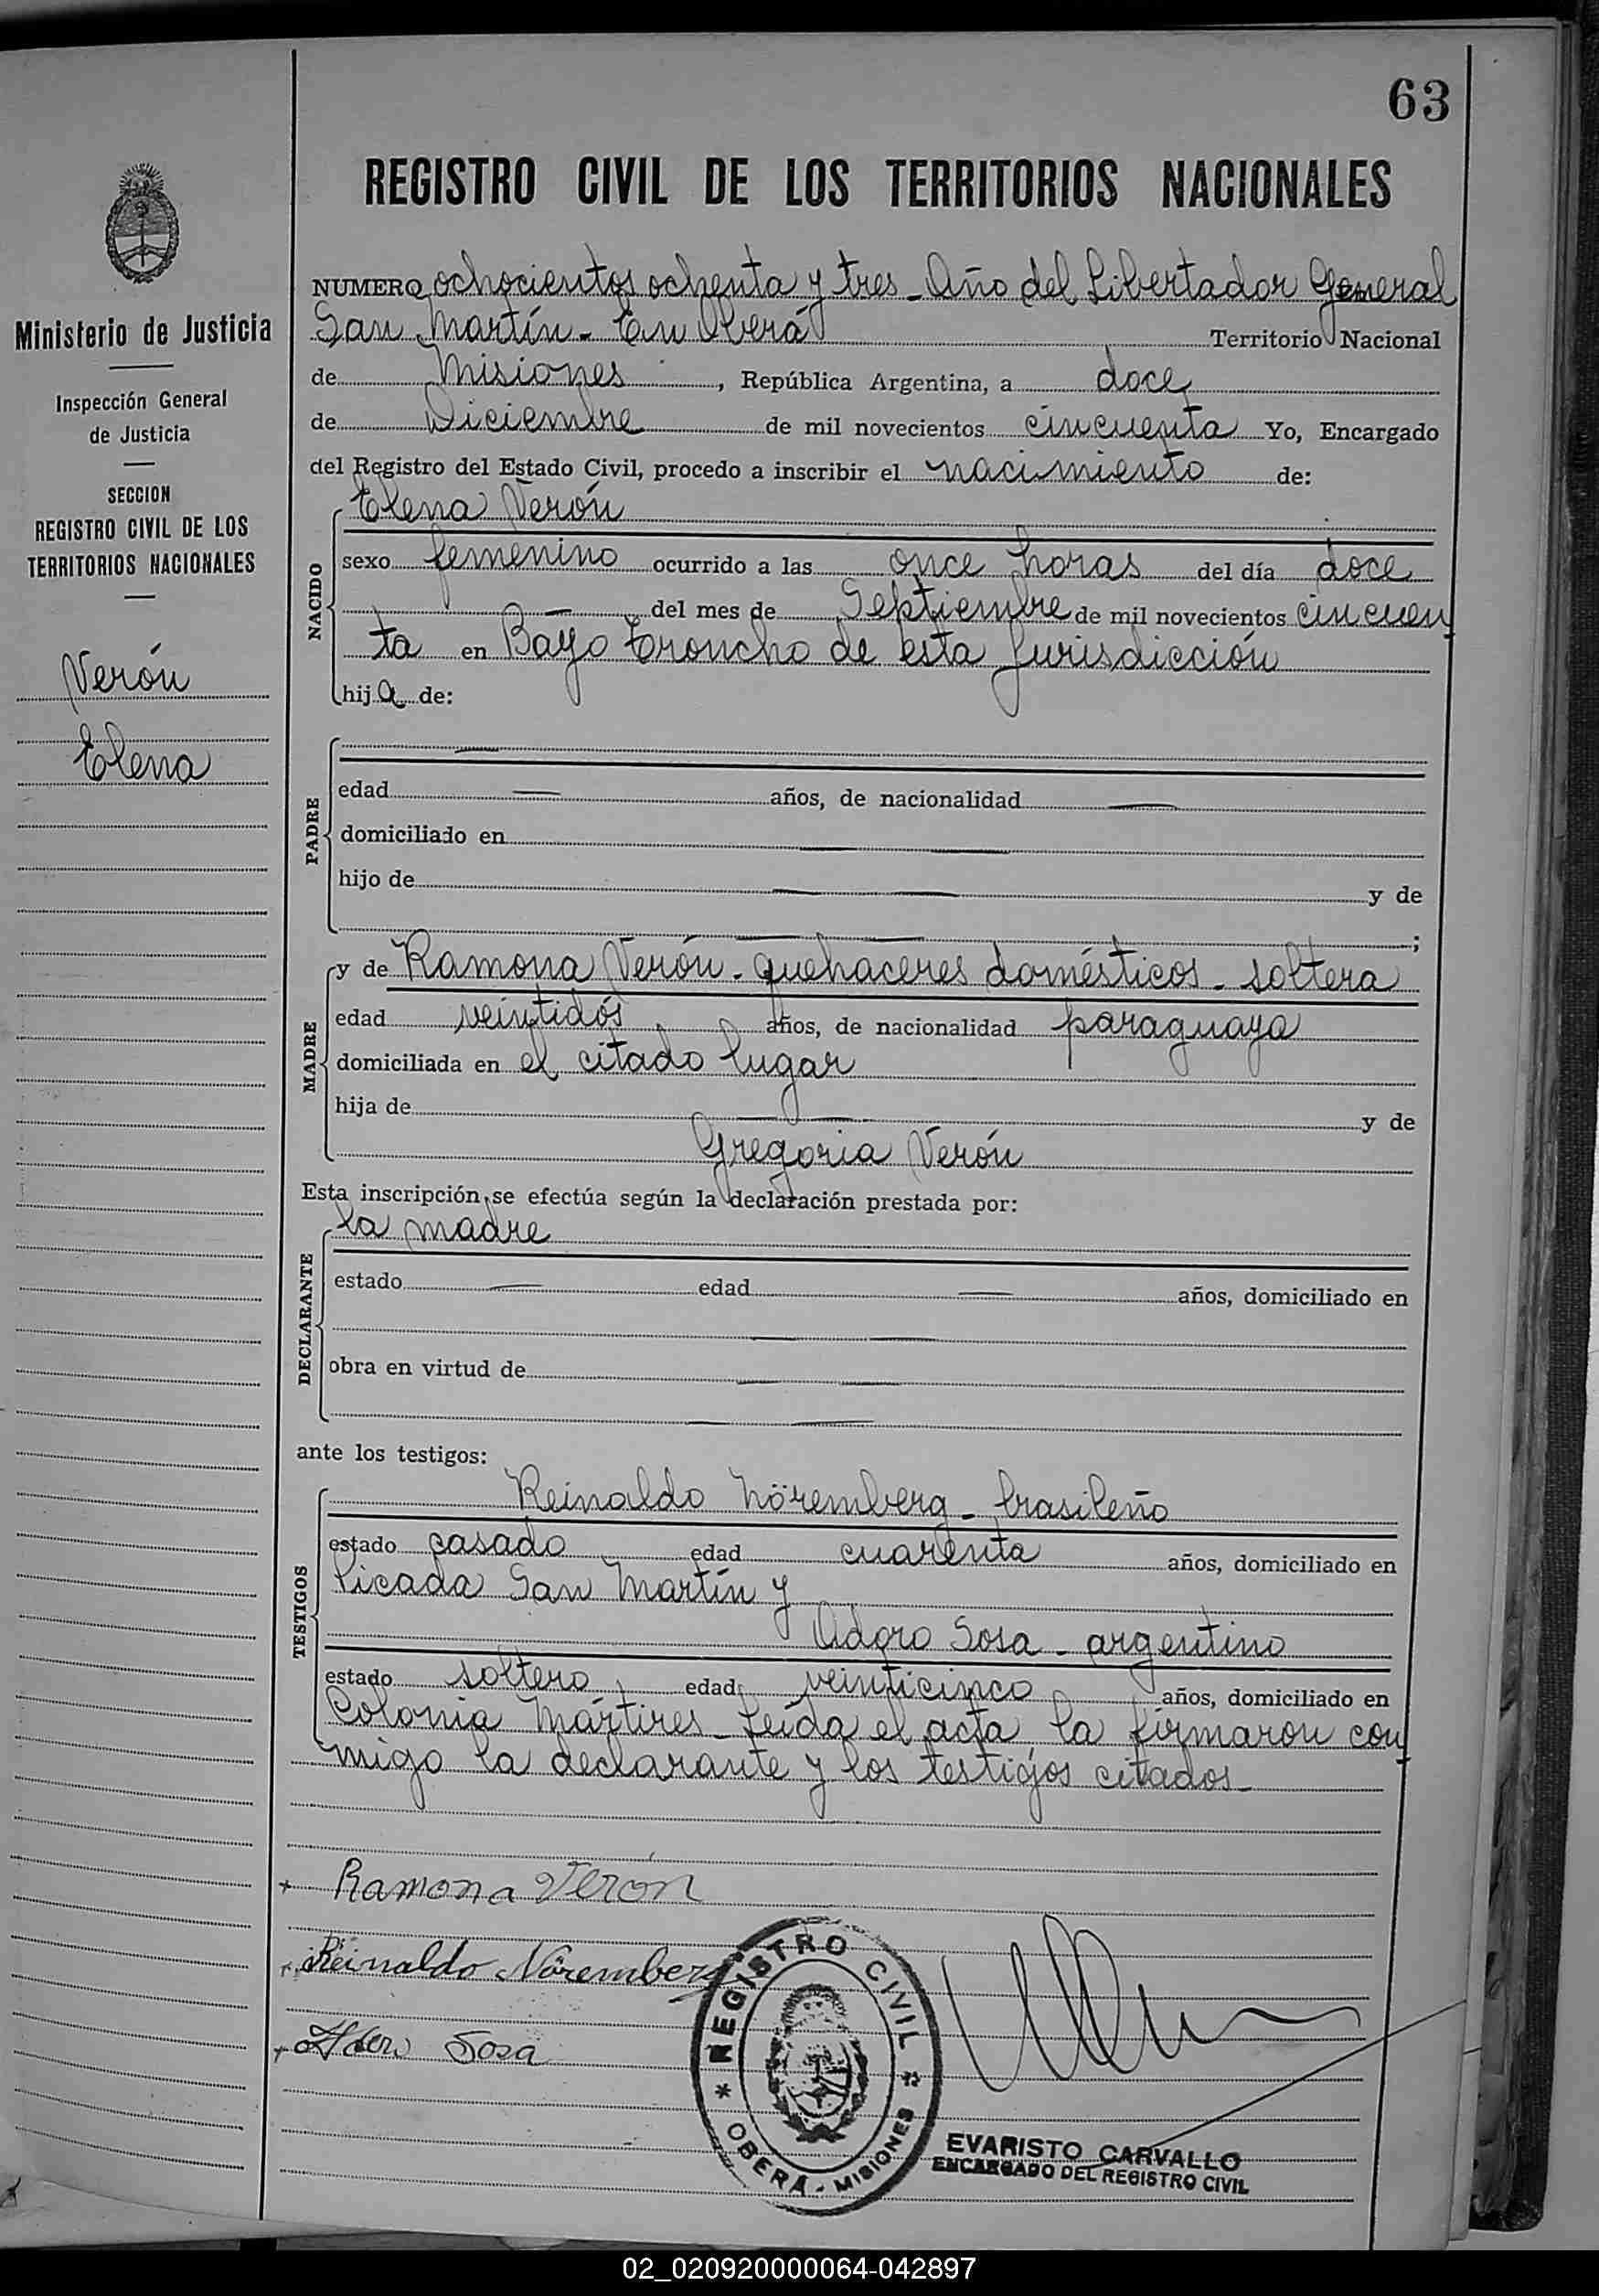 63
REGISTRO CIVIL DE LOS TERRITORIOS NACIONALES
Ministerio de Justicia
Inspección General
de Justicia
SECCION
REGISTRO CIVIL DE LOS
TERRITORIOS NACIONALES
Verón
Elena
NUMERO ochocientos ochenta y tres - Año del Libertador General
San Martín - En Oberá Territorio Nacional
de Misiones, República Argentina, a doce
de Diciembre de mil novecientos cincuenta Yo, Encargado
del Registro del Estado Civil, procedo a inscribir el nacimiento de:
NACIDO
Elena Verón
sexo femenino ocurrido a las once horas del día doce
— del mes de Septiembre de mil novecientos cincuen
ta en Bayo Troncho de esta jurisdicción
hija de:
PADRE
—
edad — años, de nacionalidad —
domiciliado en — —
hijo de — — y de
— — ;
MADRE
y de Ramona Verón - quehaceres domésticos - soltera
edad veintidós años, de nacionalidad paraguaya
domiciliada en el citado lugar
hija de — — y de
Gregoria Verón
Esta inscripción se efectúa según la declaración prestada por:
DECLARANTE
la madre
estado — edad — años, domiciliado en
— —
obra en virtud de — —
— —
ante los testigos:
TESTIGOS
Reinaldo Nöremberg - brasileño
estado casado edad cuarenta años, domiciliado en
Picada San Martín y
Adoro Sosa - argentino
estado soltero edad veinticinco años, domiciliado en
Colonia Mártires - Leída el acta, la firmaron con
migo la declarante y los testigos citados -
+ Ramona Verón
+ Reinaldo Nöremberg
+ Sosa
REGISTRO CIVIL
* OBERÁ - MISIONES *
EVARISTO CARVALLO
ENCARGADO DEL REGISTRO CIVIL
02_020920000064-042897